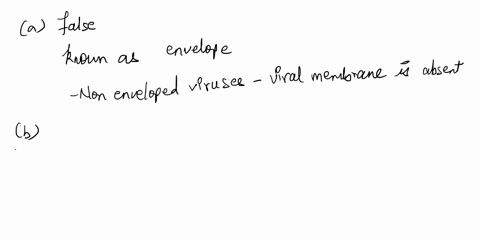 (a) false
known as envelope
- Non enveloped viruses - viral membrane is absent
(b)